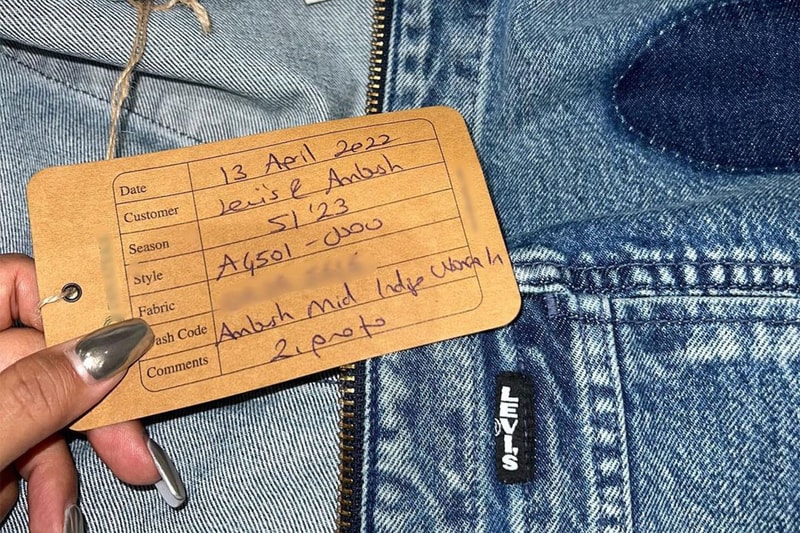 Date 13 April 2022
Customer Levi's & Ambush
Season S1'23
Style A4501-0000
Fabric
ash Code Ambush Mid Indigo
Comments 2. proto
LEVI'S